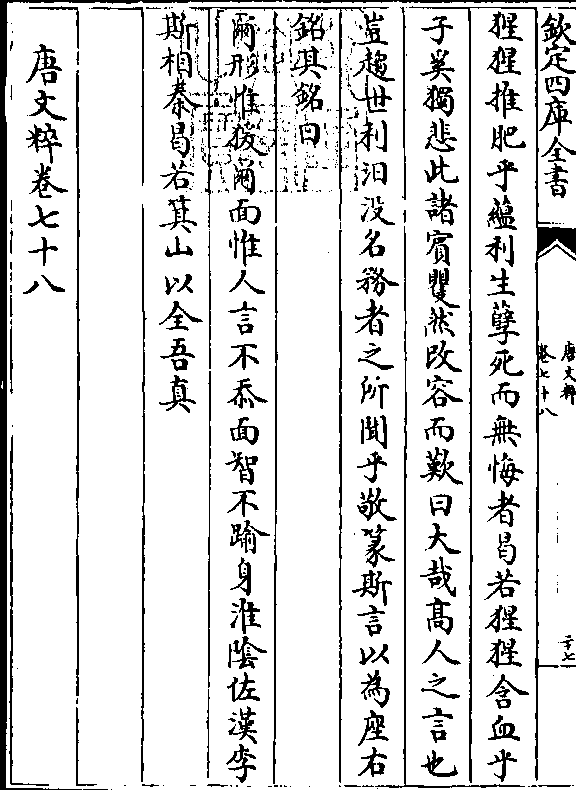 欽定四庫全書
唐文粹
卷七十八
二十七
猩猩推肥乎蘊利生孽死而無悔者曷若猩猩含血乎
子奚獨悲此諸賓瞿然改容而歎曰大哉高人之言也
豈趨世利汩没名務者之所聞乎敬篆斯言以為座右
銘其銘曰
爾形惟猨爾面惟人言不忝面智不踰身淮陰佐漢李
斯相秦曷若箕山以全吾真
唐文粹卷七十八